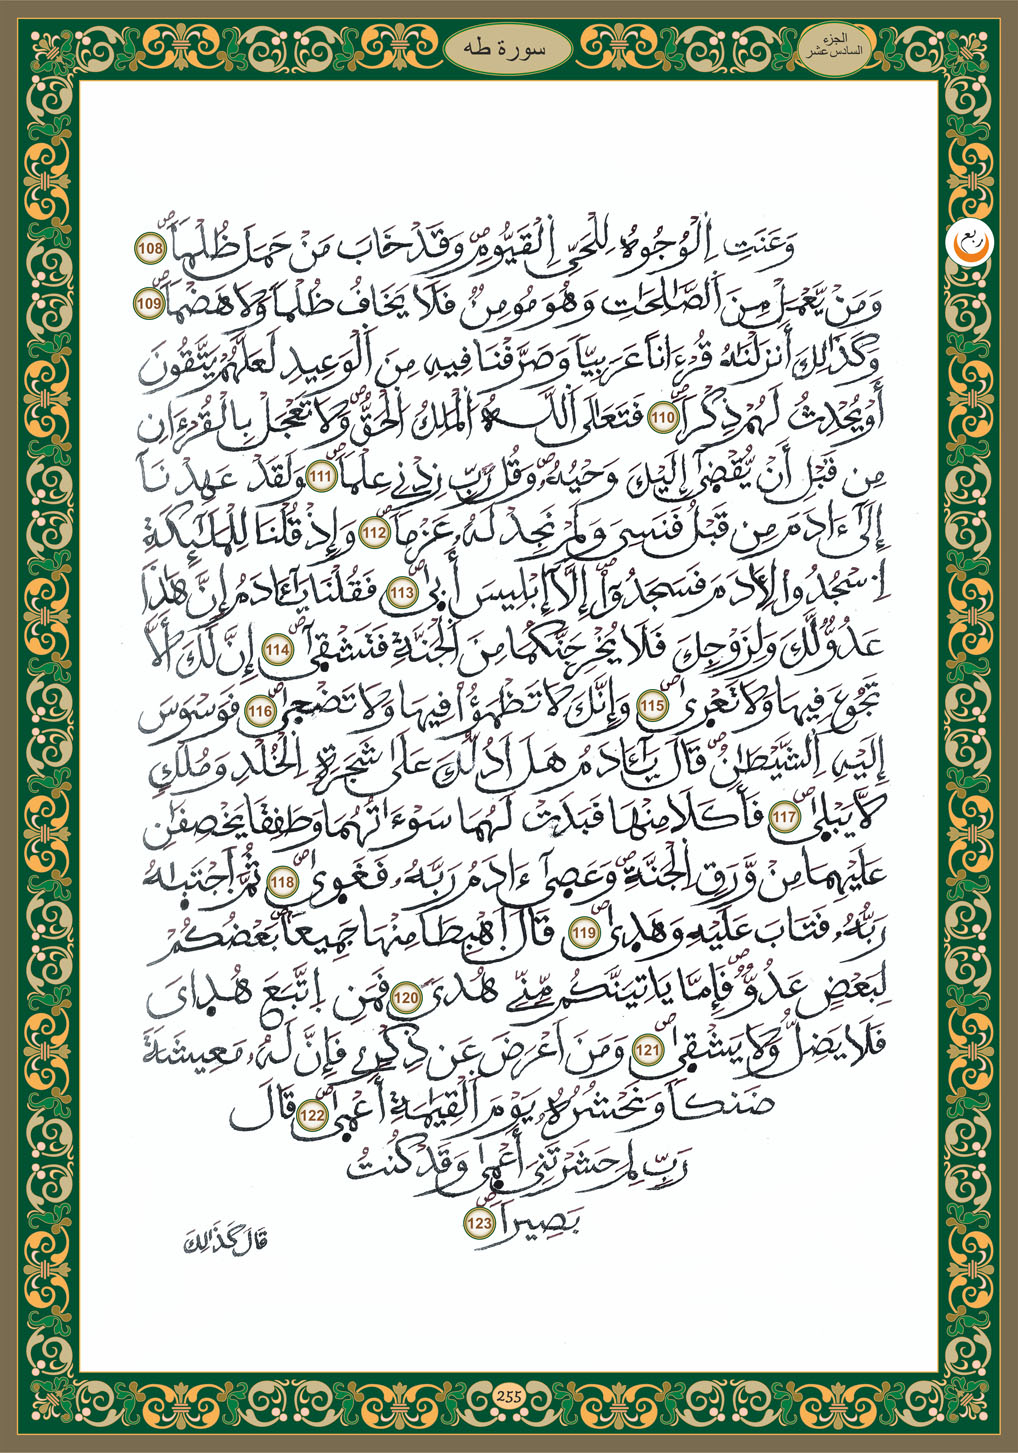 سورة طه
الجزء
السادس عشر
ربع
وَعَنَتِ اِ۬لْوُجُوهُ لِلْحَيِّ اِ۬لْقَيُّومِۖ وَقَدْ خَابَ مَنْ حَمَلَ ظُلْماٗۖ 108
وَمَنْ يَّعْمَلْ مِنَ اَ۬لصَّٰلِحَٰتِ وَهُوَ مُومِنٞ فَلَا يَخَافُ ظُلْماٗ وَلَا هَضْماٗۖ 109
وَكَذَٰلِكَ أَنزَلْنَٰهُ قُرْءَاناً عَرَبِيّاٗ وَصَرَّفْنَا فِيهِ مِنَ اَ۬لْوَعِيدِ لَعَلَّهُمْ يَتَّقُونَ
أَوْ يُحْدِثُ لَهُمْ ذِكْراٗۖ 110 فَتَعَٰلَى اَ۬للَّهُ اُ۬لْمَلِكُ اُ۬لْحَقُّۖ وَلَا تَعْجَلْ بِالْقُرْءَانِ
مِن قَبْلِ أَنْ يُّقْضَىٰٓ إِلَيْكَ وَحْيُهُۥۖ وَقُل رَّبِّ زِدْنِے عِلْماٗۖ 111 وَلَقَدْ عَهِدْنَآ
إِلَىٰٓ ءَادَمَ مِن قَبْلُ فَنَسِيَ وَلَمْ نَجِدْ لَهُۥ عَزْماٗۖ 112 وَإِذْ قُلْنَا لِلْمَلَٰٓئِكَةِ
اِ۟سْجُدُواْ لِأٓدَمَ فَسَجَدُوٓاْ إِلَّآ إِبْلِيسَ أَبۭيٰۖ 113 فَقُلْنَا يَٰٓـَٔادَمُ إِنَّ هَٰذَا
عَدُوّٞ لَّكَ وَلِزَوْجِكَ فَلَا يُخْرِجَنَّكُمَا مِنَ اَ۬لْجَنَّةِ فَتَشْقۭيٰٓۖ 114 إِنَّ لَكَ أَلَّا
تَجُوعَ فِيهَا وَلَا تَعْرۭيٰۖ 115 وَإِنَّكَ لَا تَظْمَؤُاْ فِيهَا وَلَا تَضْحۭيٰۖ 116 فَوَسْوَسَ
إِلَيْهِ اِ۬لشَّيْطَٰنُۖ قَالَ يَٰٓـَٔادَمُ هَلَ اَدُلُّكَ عَلَىٰ شَجَرَةِ اِ۬لْخُلْدِ وَمُلْكٖ
لَّا يَبْلۭيٰۖ 117 فَأَكَلَا مِنْهَا فَبَدَتْ لَهُمَا سَوْءَٰتُهُمَا وَطَفِقَا يَخْصِفَٰنِ
عَلَيْهِمَا مِنْ وَّرَقِ اِ۬لْجَنَّةِۖ وَعَصۭيٰٓ ءَادَمُ رَبَّهُۥ فَغَوۭيٰۖ 118 ثُمَّ اَجْتَبَٰهُ
رَبُّهُۥ فَتَابَ عَلَيْهِ وَهَدۭيٰۖ 119 قَالَ اَ۪هْبِطَا مِنْهَا جَمِيعاَۢۖ بَعْضُكُمْ
لِبَعْضٍ عَدُوّٞۖ فَإِمَّا يَاتِيَنَّكُم مِّنِّے هُدىٗ 120 فَمَنِ اِ۪تَّبَعَ هُدَايَ
فَلَا يَضِلُّ وَلَا يَشْقۭيٰۖ 121 وَمَنَ اَعْرَضَ عَن ذِكْرِے فَإِنَّ لَهُۥ مَعِيشَةٗ
ضَنكاٗ وَنَحْشُرُهُۥ يَوْمَ اَ۬لْقِيَٰمَةِ أَعْمۭيٰۖ 122 قَالَ
رَبِّ لِمَ حَشَرْتَنِيٓ أَعْمۭيٰ وَقَدْ كُنتُ
بَصِيراٗۖ 123
قَالَ كَذَٰلِكَ
255